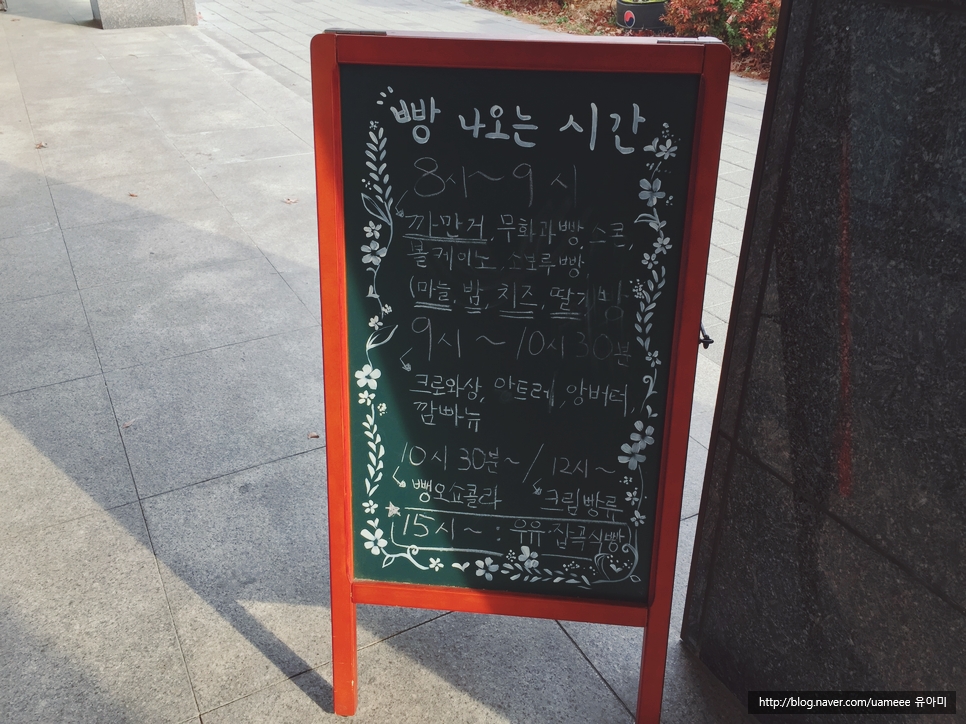 빵 나오는 시간
8시~9시
까만거, 무화과빵, 스콘,
볼케이노, 소보루빵,
(마늘, 밤, 치즈, 딸기 빵
9시 ~ 10시 30분
크로와상, 안트레, 앙버터,
깜빠뉴
10시 30분~ / 12시~
뺑오쇼콜라 크림빵류
15시~ : 우유·잡곡식빵
http://blog.naver.com/uameee 유아미